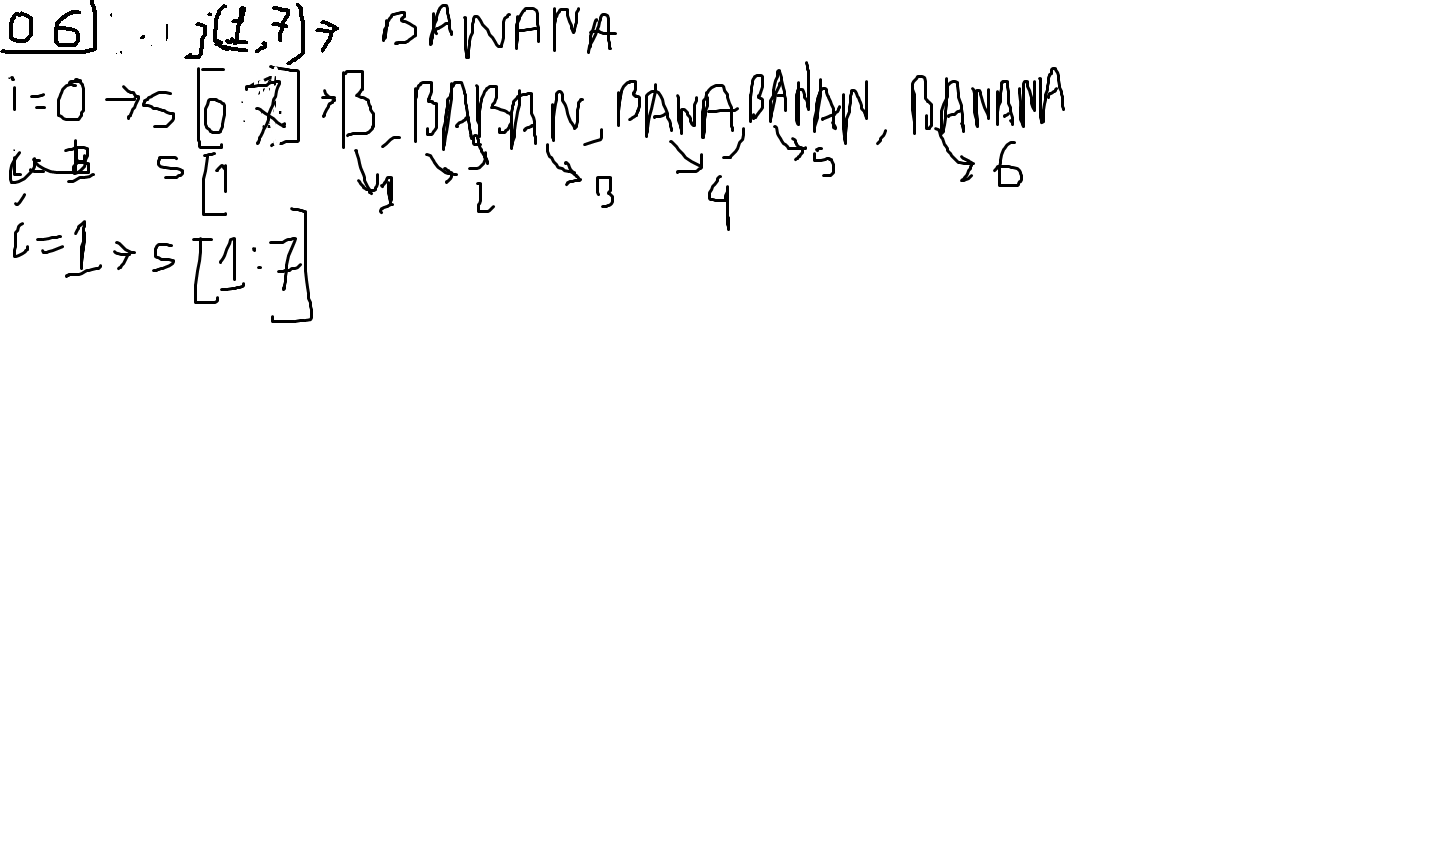 0 6 j(1,7) → BANANA
i=0 → S[0:7] → B, BA, BAN, BANA, BANAN, BANANA
S[1 1 2 3 4 5 6
i=1 → S[1:7]